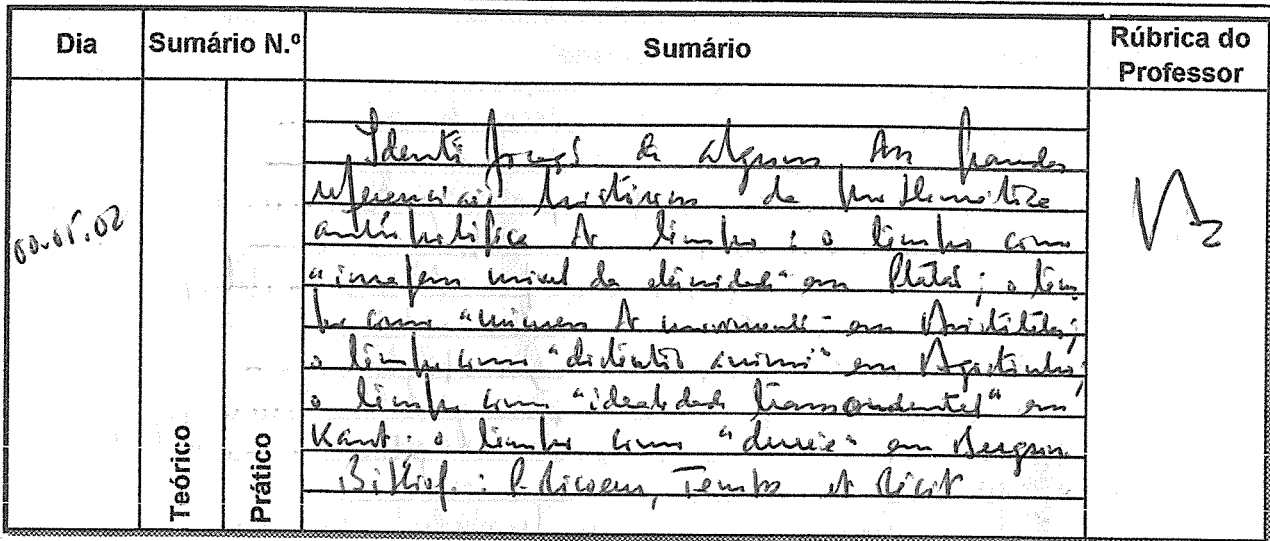 Dia Sumário N.º Sumário Rúbrica do Professor
Teórico
Prático
Identificação de alguns dos grandes
referenciais históricos da problemática
do tempo : o tempo como
"imagem móvel da eternidade" em Platão ; o tem
po como "número do movimento" em Aristóteles ;
o tempo como "distentio animi" em Agostinho ;
o tempo como "idealidade transcendental" em
Kant . o tempo como "durée" em Bergson
Bibliof. : P. Ricoeur, Temps et Récit